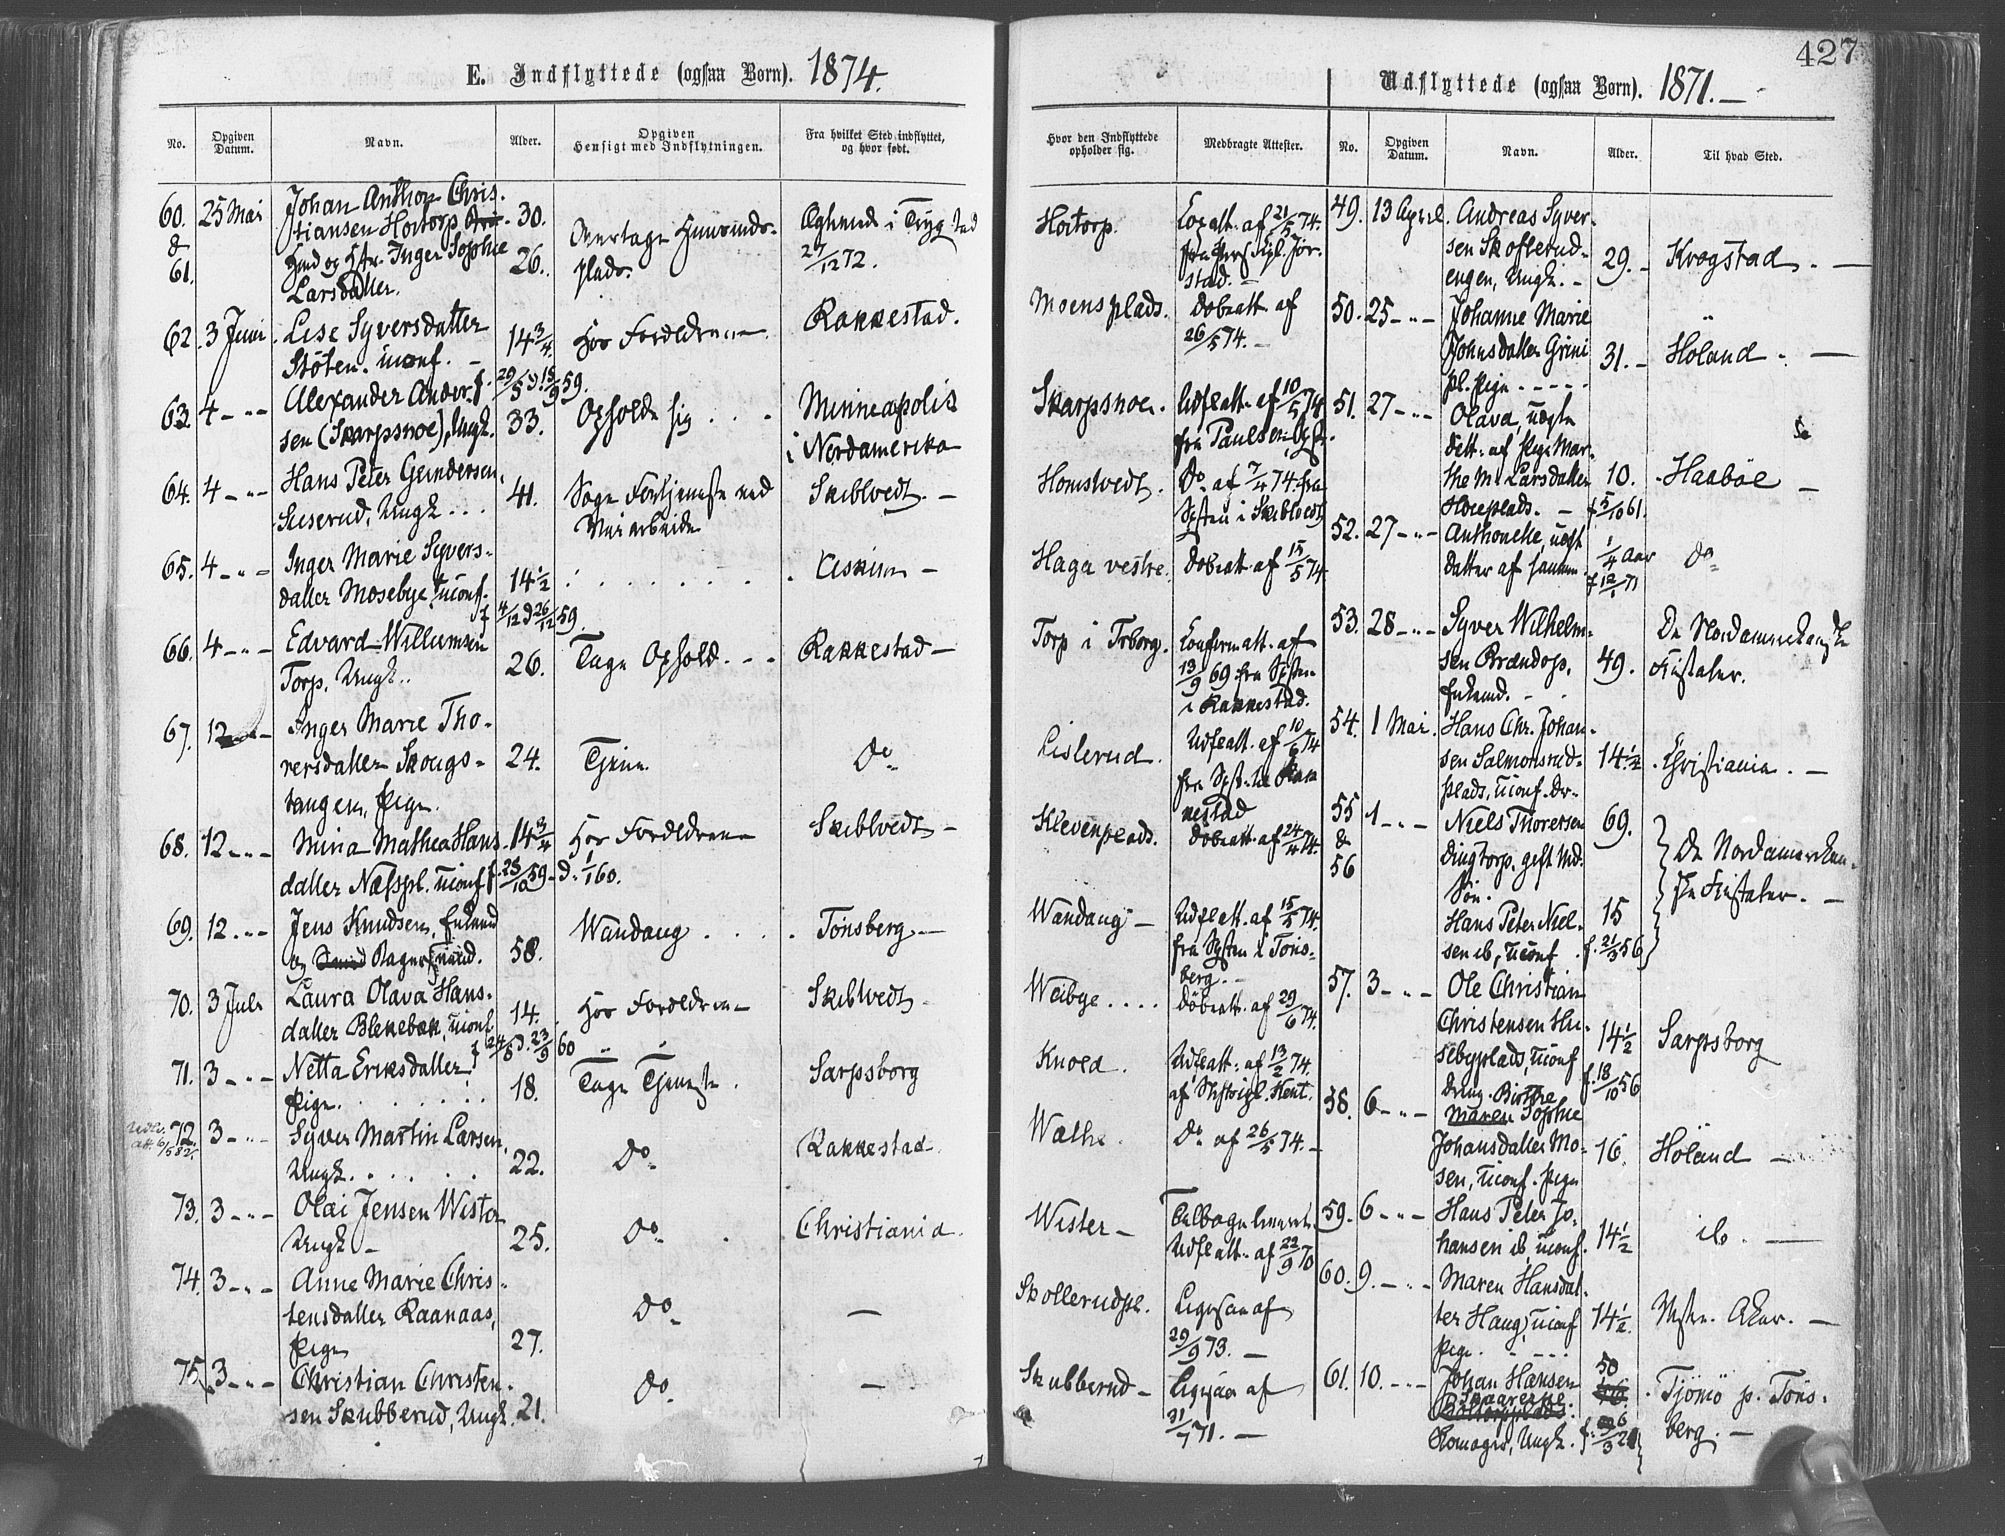 427
E. Indflyttede (ogsaa Børn). 1874.
No.
Opgiven Datum.
Navn.
Alder.
Opgiven Hensigt med Indflytningen.
Fra hvilket Sted indflyttet, og hvor født.
Hvor den Indflyttede opholder sig.
Medbragte Attester.
60. & 61.
25 Mai
Johan Anthon Chris-
tiansen Hoitorp
og Inger Sophie
Larsdatter.
30.
26.
plads.
27/12 72.
Hoitorp.
af 21/5 74.
62.
3 Juni
Lise Syversdatter
Støten. uconf.
14 3/4.
f. 29/5 d. 18/9 59.
Hos Forældrene
Rakkestad.
Moensplads.
Døbeatt. af
26/5 74.
63.
4 - " -
Alexander Ander-
sen (Skarpsnoe), Ungk.
33.
Opholde sig
Minneapolis
i Nordamerika
Skarpsnoe.
Udflatt. af 10/5 74
fra Paulsen
64.
4 - " -
Hans Peter Gundersen
Suserud, Ungk.
41.
Søge Fortjeneste ved
Veiarbeide
Skibtvedt.
Homstvedt.
Do. af 7/4 74 fra
Spsten i Skibtvedt
65.
4 - " -
Inger Marie Syvers-
datter Mosebye, uconf.
14 1/2
f. 4/12 d. 26/12 59.
Eskium
Haga vestre.
Døbeatt. af 15/5 74
66.
4 - " -
Edvard Willumsen
Torp, Ungk.
26.
Tage Ophold.
Rakkestad
Torp i Trøborg.
Confirm. att. af
13/9 69 fra Spsten
i Rakkestad.
67.
12 - " -
Inger Marie Tho-
rersdatter Skougs-
tangen, Pige.
24.
Tjene
Do.
Lislerud.
Udflatt. af 10/6 74
68.
12 - " -
Mina Mathea Hans
datter Næsspl. uconf
14 3/4
f. 25/10 59. d. 1/1 60.
Hos Forældrene
Skibtvedt
Klevenplads.
Døbeatt. af 24/4 74.
69.
12 - " -
Jens Knudsen, Enkemd
og Bagersvend.
58.
Wandaug
Tønsberg
Wandaug
Udflatt. af 15/5 74.
fra Spsten i Tøns-
berg.
70.
3 Juli
Laura Olava Hans-
datter Blekebæk, uconf
14.
f. 24/5 d. 23/9 60
Hos Forældrene
Skibtvedt
Weibye
Døbeatt. af 29/6 74.
71.
3 - " -
Netta Eriksdatter
Pige.
18.
Tage Tjeneste.
Sarpsborg
Knold.
Udflatt. af 13/2 74.
72.
3 - " -
Syver Martin Larsen,
Ungk.
22.
Do.
Rakkestad.
Do. af 26/5 74.
73.
3 - " -
Olai Jensen Wister
Ungk
25.
Do.
Christiania.
Wister
Udflatt. af 22/9 70
74.
3 - " -
Anne Marie Chris-
tensdatter Raanaas,
Pige
27.
Do.
Skollerudpl.
Ligesaa af
29/9 73.
75.
3 - " -
Christian Christen-
sen Skubberud, Ungk.
21.
Do.
Skubberud
Ligesaa af
31/7 71.
Udflyttede (ogsaa Børn). 1871.
No.
Opgiven Datum.
Navn.
Alder.
Til hvad Sted.
49.
13 April.
Andreas Syver-
sen Skofterud-
engen, Ungk.
29.
Krogstad
50.
25 - " -
Johanne Marie
Johnsdatter Grini
pl. Pige
31.
Høland.
51.
27 - " -
Olava, uægte
Datt. af Pige Mar-
the M. Larsdatter
10.
f. 5/10 61.
Haabøl
52.
27 - " -
Anthonette, uægt
Datter af samme
1/4 Aar
Do.
53.
28 - " -
Syver Wilhelm-
sen Brændop,
Enkemd.
49.
De Nordamerikanske
Fristater.
54.
1 Mai.
Hans Chr. Johan-
sen Salmonsrud-
plads, uconf. Dr.
14 1/2
Christiania.
55 & 56
1 - " -
Niels Thorersen
Dingtorp, gift Md.
Søn.
Hans Peter Niel-
sen ib, uconf
69.
15
f. 21/3 56
De Nordamerikan-
ske Fristater.
57.
3 - " -
Ole Christian
Christensen Hu-
sebyplads, uconf
Dreng.
14 1/2
f. 18/10 56
Sarpsborg
58.
6 - " -
Maren Sophie
Johansdatter Mo-
sen, uconf. Pige
16.
Høland
59.
6 - " -
Hans Peter Jo-
hansen ib, uconf.
14 1/2
ib.
60.
9. - " -
Maren Hansdat-
ter Haug, uconf
Pige.
14 1/2.
Vestre Aker.
61.
10. - " -
Johan Hansen
Romager, Ungk.
50
Tjømø p. Tøns-
berg.